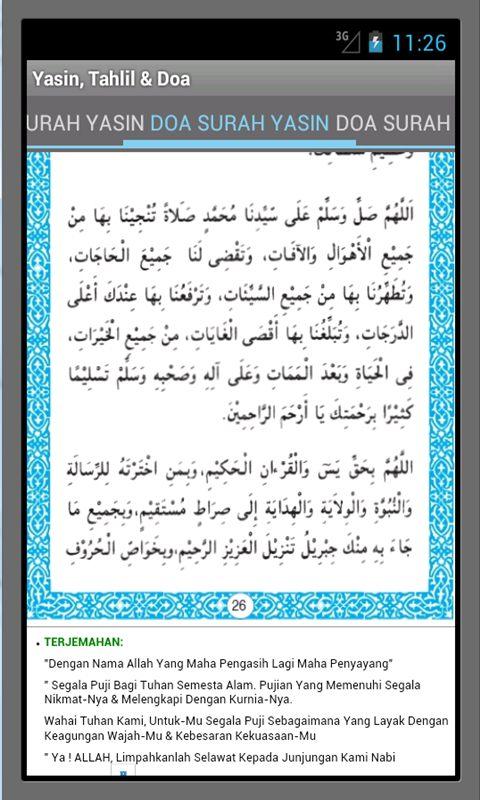 3G 11:26
Yasin, Tahlil & Doa
URAH YASIN DOA SURAH YASIN DOA SURAH
اَللَّهُمَّ صَلِّ وَسَلِّمْ عَلَى سَيِّدِنَا مُحَمَّدٍ صَلَاةً تُنْجِيْنَا بِهَا مِنْ
جَمِيْعِ الْأَهْوَالِ وَالآفَاتِ، وَتَقْضِى لَنَا جَمِيْعَ الْحَاجَاتِ،
وَتُطَهِّرُنَا بِهَا مِنْ جَمِيْعِ السَّيِّئَاتِ، وَتَرْفَعُنَا بِهَا عِنْدَكَ أَعْلَى
الدَّرَجَاتِ، وَتُبَلِّغُنَا بِهَا أَقْصَى الْغَايَاتِ، مِنْ جَمِيْعِ الْخَيْرَاتِ،
فِى الْحَيَاةِ وَبَعْدَ الْمَمَاتِ وَعَلَى آلِهِ وَصَحْبِهِ وَسَلَّمْ تَسْلِيْمًا
كَثِيْرًا بِرَحْمَتِكَ يَا أَرْحَمَ الرَّاحِمِيْنَ.
اَللَّهُمَّ بِحَقِّ يَسَ وَالْقُرْءَانِ الْحَكِيْمِ، وَبِمَنِ اخْتَرْتَهُ لِلرِّسَالَةِ
وَالنُّبُوَّةِ وَالْوِلَايَةِ وَالْهِدَايَةِ إِلَى صِرَاطٍ مُسْتَقِيْمٍ، وَبِجَمِيْعِ مَا
جَاءَ بِهِ مِنْكَ جِبْرِيْلُ تَنْزِيْلَ الْعَزِيْزِ الرَّحِيْمِ، وَبِخَوَاصِّ الْحُرُوْفِ
26
• TERJEMAHAN:
"Dengan Nama Allah Yang Maha Pengasih Lagi Maha Penyayang"
" Segala Puji Bagi Tuhan Semesta Alam. Pujian Yang Memenuhi Segala
Nikmat-Nya & Melengkapi Dengan Kurnia-Nya.
Wahai Tuhan Kami, Untuk-Mu Segala Puji Sebagaimana Yang Layak Dengan
Keagungan Wajah-Mu & Kebesaran Kekuasaan-Mu
" Ya ! ALLAH, Limpahkanlah Selawat Kepada Junjungan Kami Nabi